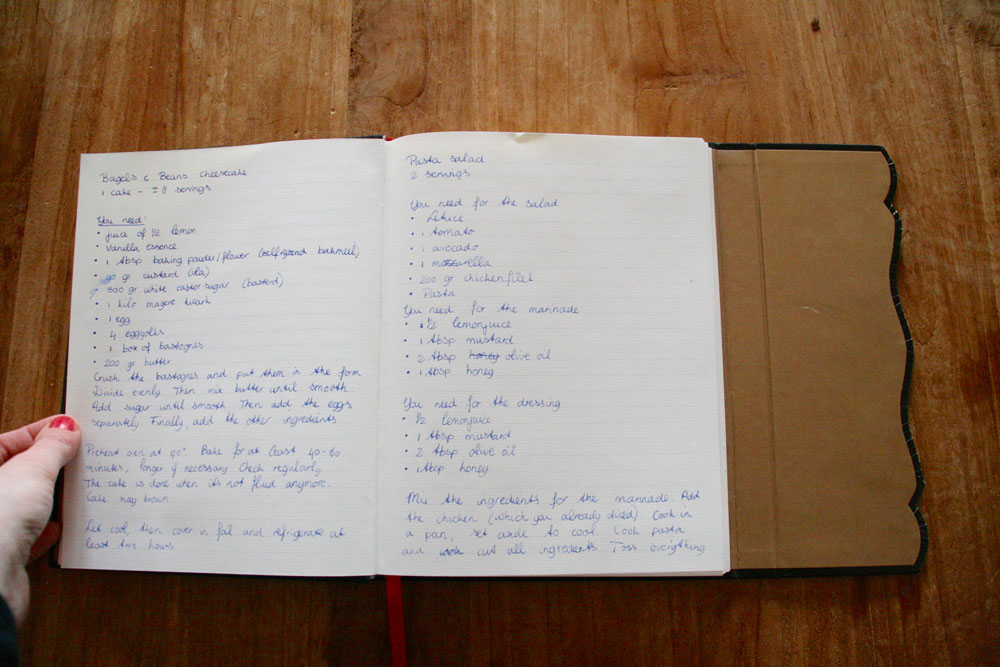 Bagels & Beans Cheesecake
1 cake - ± 8 servings
You need:
• juice of 1/2 lemon
• Vanilla essence
• 1 tbsp baking powder/flower (selfrijzend bakmeel)
• gr custard (vla)
• 300 gr white castor sugar (basterd)
• 1 kilo magere kwark
• 1 egg
• 4 eggyolks
• 1 box of bastognes
• 200 gr butter
Crush the bastognes and put them in the form
Divide evenly. Then mix butter until smooth.
Add sugar until smooth. Then add the eggs
separately. Finally, add the other ingredients
Preheat oven at Bake for at least 40-60
minutes, longer if necessary Check regularly
The cake is done when it's not fluid anymore.
Cake may brown.
Let cool, then cover in foil and refrigerate at
least two hours
Pasta salad
2 servings
You need for the salad
• Letuce
• 1 tomato
• 1 avocado
• 1 mozzarella
• 200 gr chickenfilet
• Pasta
You need for the marinade
• 1/2 lemonjuice
• 1 tbsp mustard
• 2 tbsp honey olive oil
• 1 tbsp honey
You need for the dressing:
• 1/2 lemonjuice
• 1 tbsp mustard
• 2 tbsp olive oil
• 1 tbsp honey
Mix the ingredients for the marinade. Add
the chicken (which you already diced). Cook in
a pan, set aside to cool. Cook pasta
and cut all ingredients Toss everything